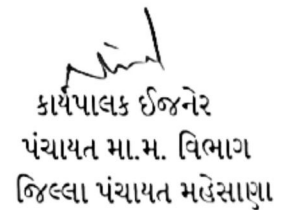 કાર્યપાલક ઈજનેર
પંચાયત મા.મ. વિભાગ
જિલ્લા પંચાયત મહેસાણા